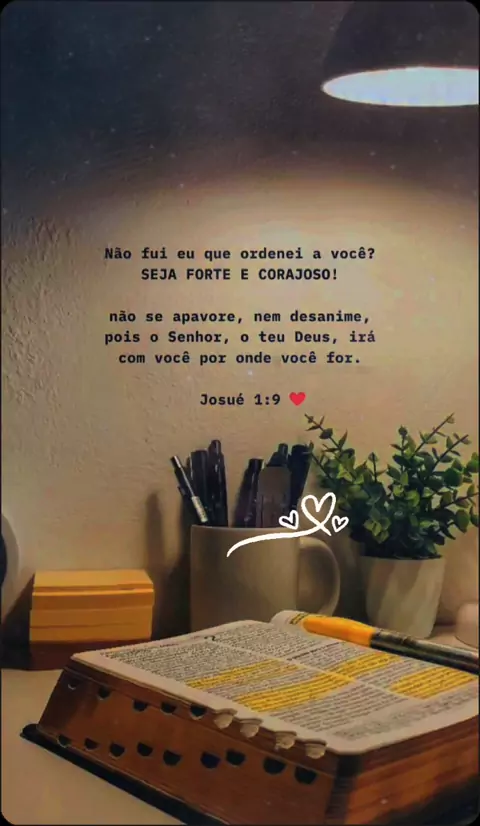 Não fui eu que ordenei a você?
SEJA FORTE E CORAJOSO!
não se apavore, nem desanime,
pois o Senhor, o teu Deus, irá
com você por onde você for.
Josué 1:9 ❤️